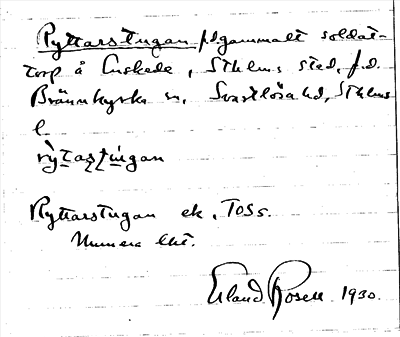 Ryttarstugan, f.d. gammalt soldat-
torp å Enskede, Sthlms stad, f.d.
Brännkyrka sn, Svartlösa hd, Sthlms
l
rỳtastúgan
Ryttarstugan ek, TOSs.
Numera
Erland Rosell 1930.